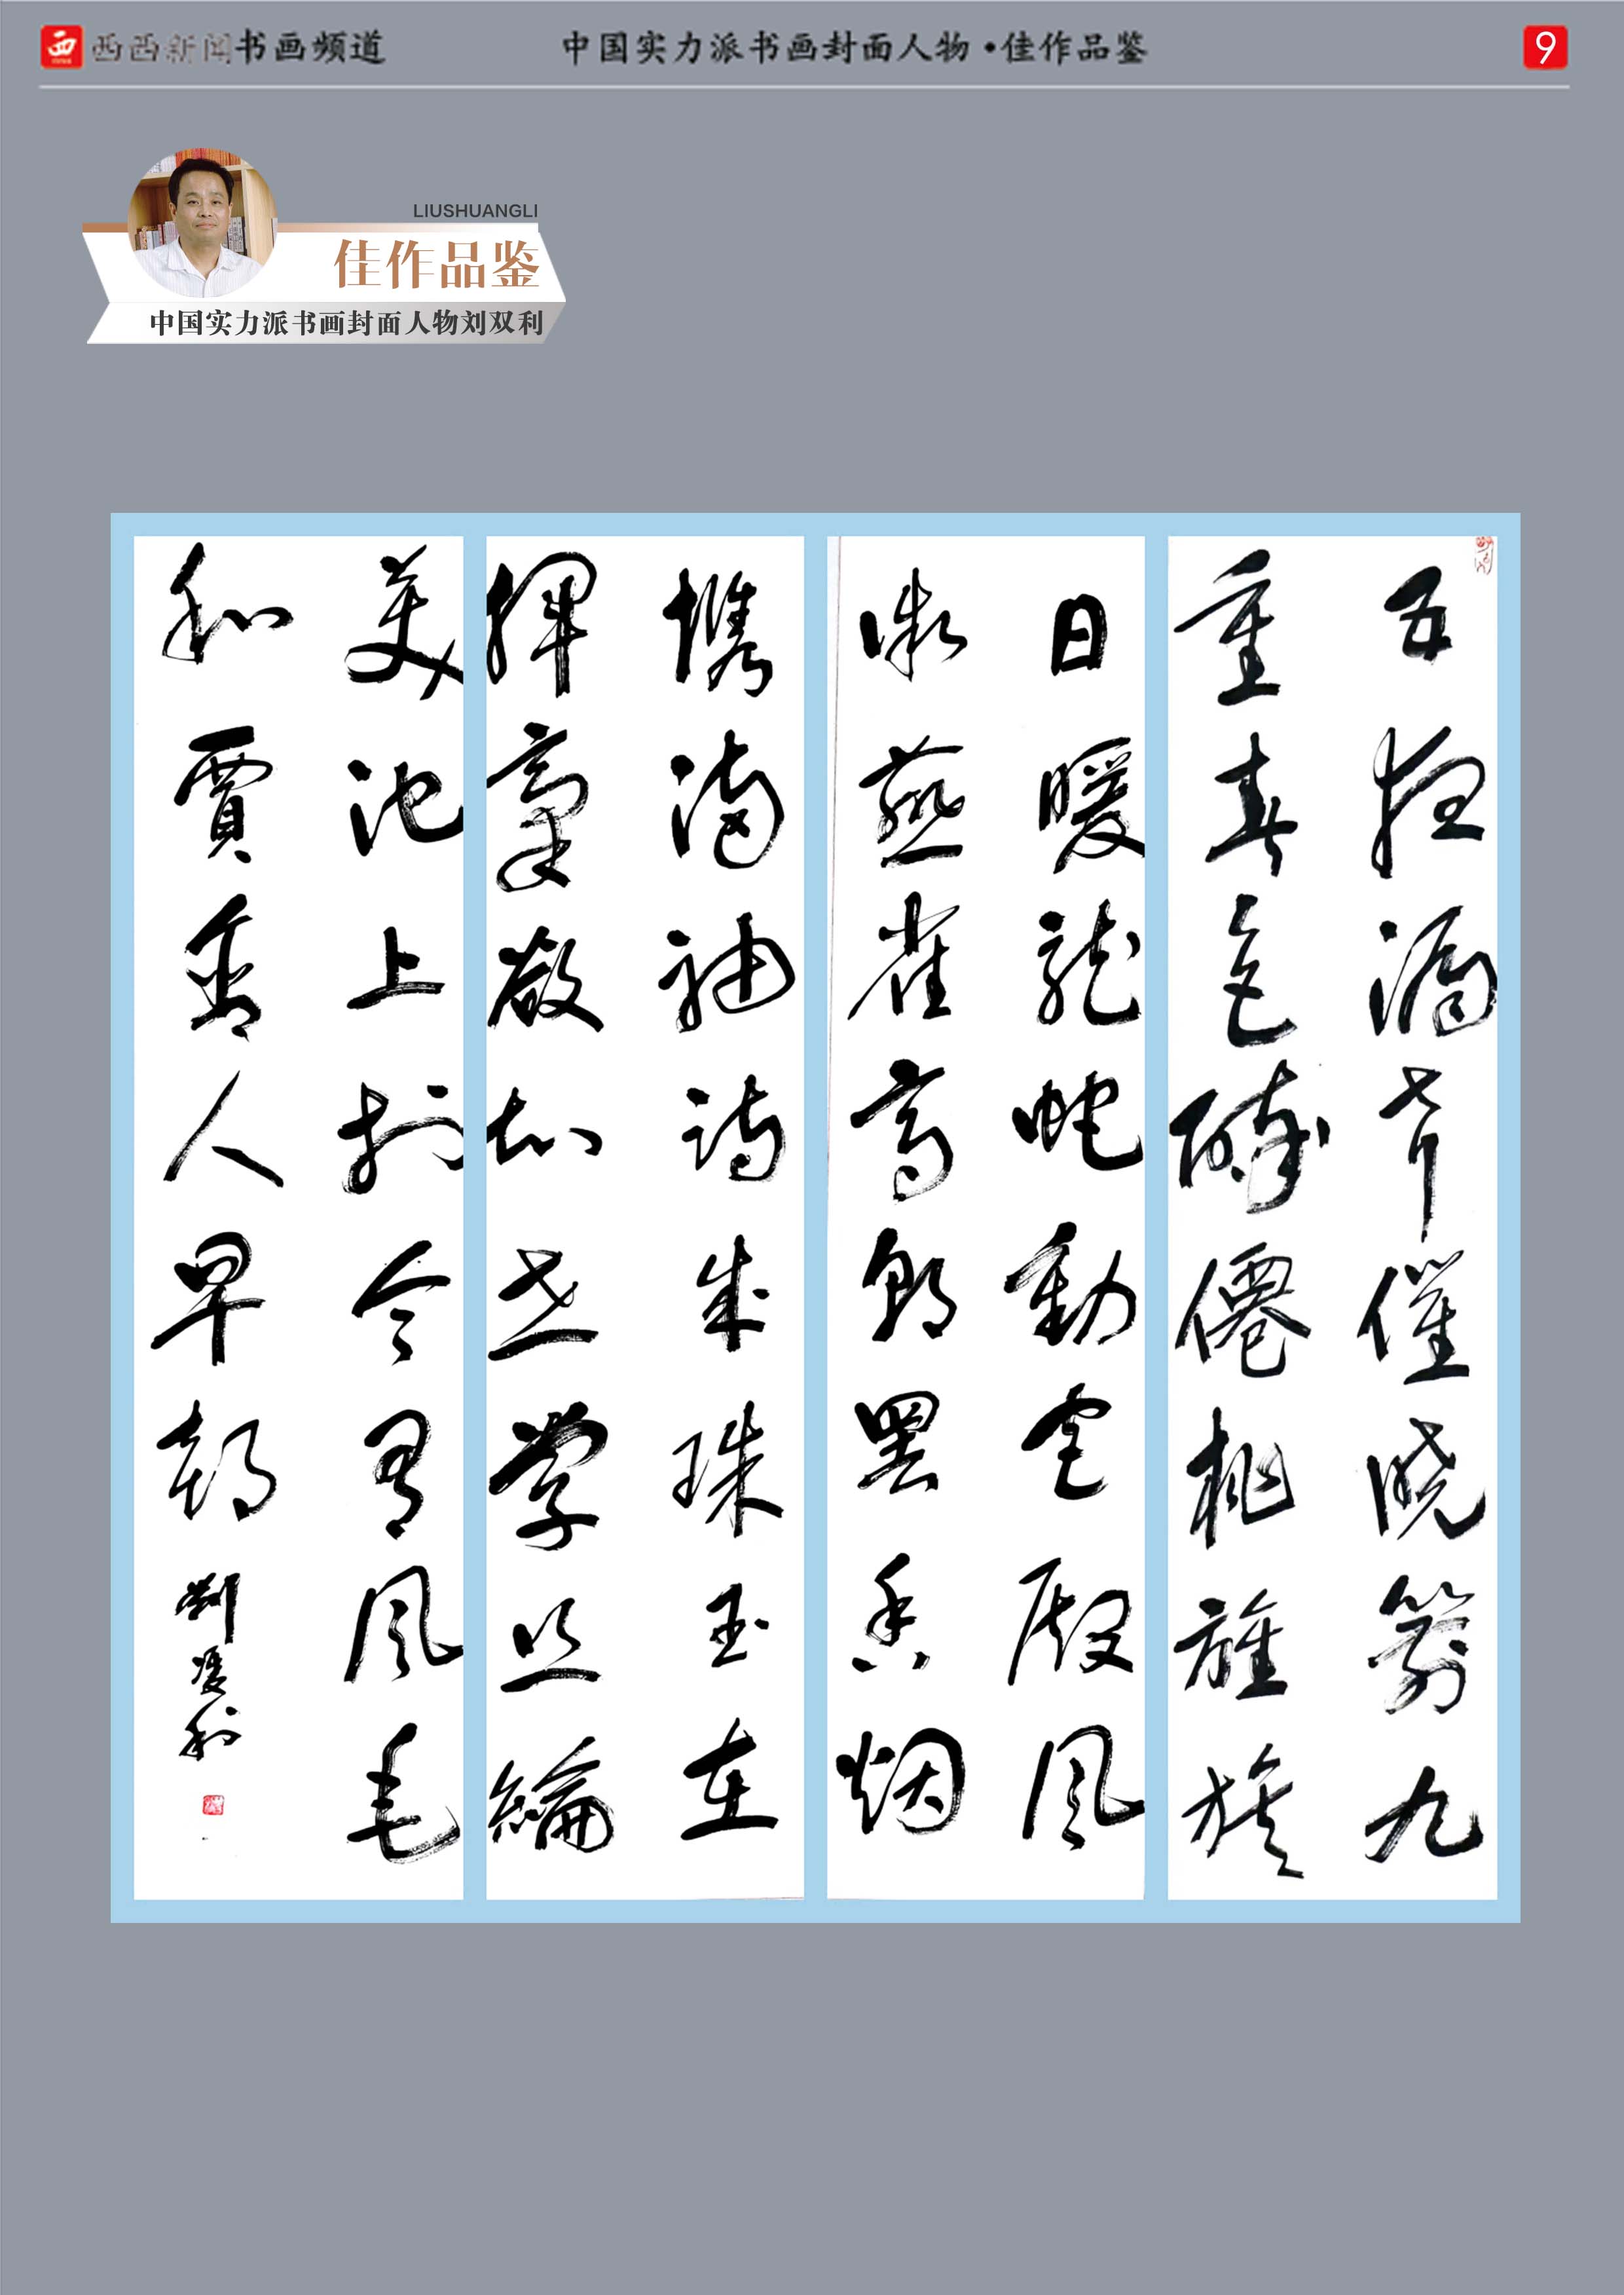 西西新闻书画频道
中国实力派书画封面人物•佳作品鉴
9
LIUSHUANGLI
佳作品鉴
中国实力派书画封面人物刘双利
五夜漏声催晓箭九
重春色醉僊桃旌旗
日暖龍蛇動宫殿风
微燕雀高朝罷香烟
携满袖诗成珠玉在
揮毫欲知世掌丝綸
美池上於今有凤毛
和賈舍人早朝
劉双利